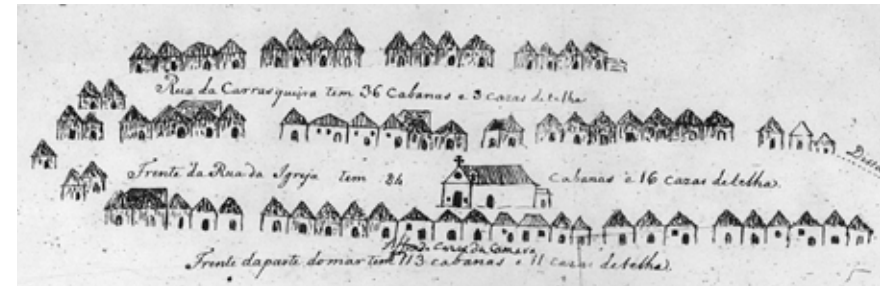 Rua da Carrasqueira tem 36 Cabanas e 3 cazas de telha
Frente da Rua da Igreja tem 84 cabanas e 16 cazas de telha.
da Camara
Frente da parte do mar tem 113 cabanas e 11 cazas de telha.